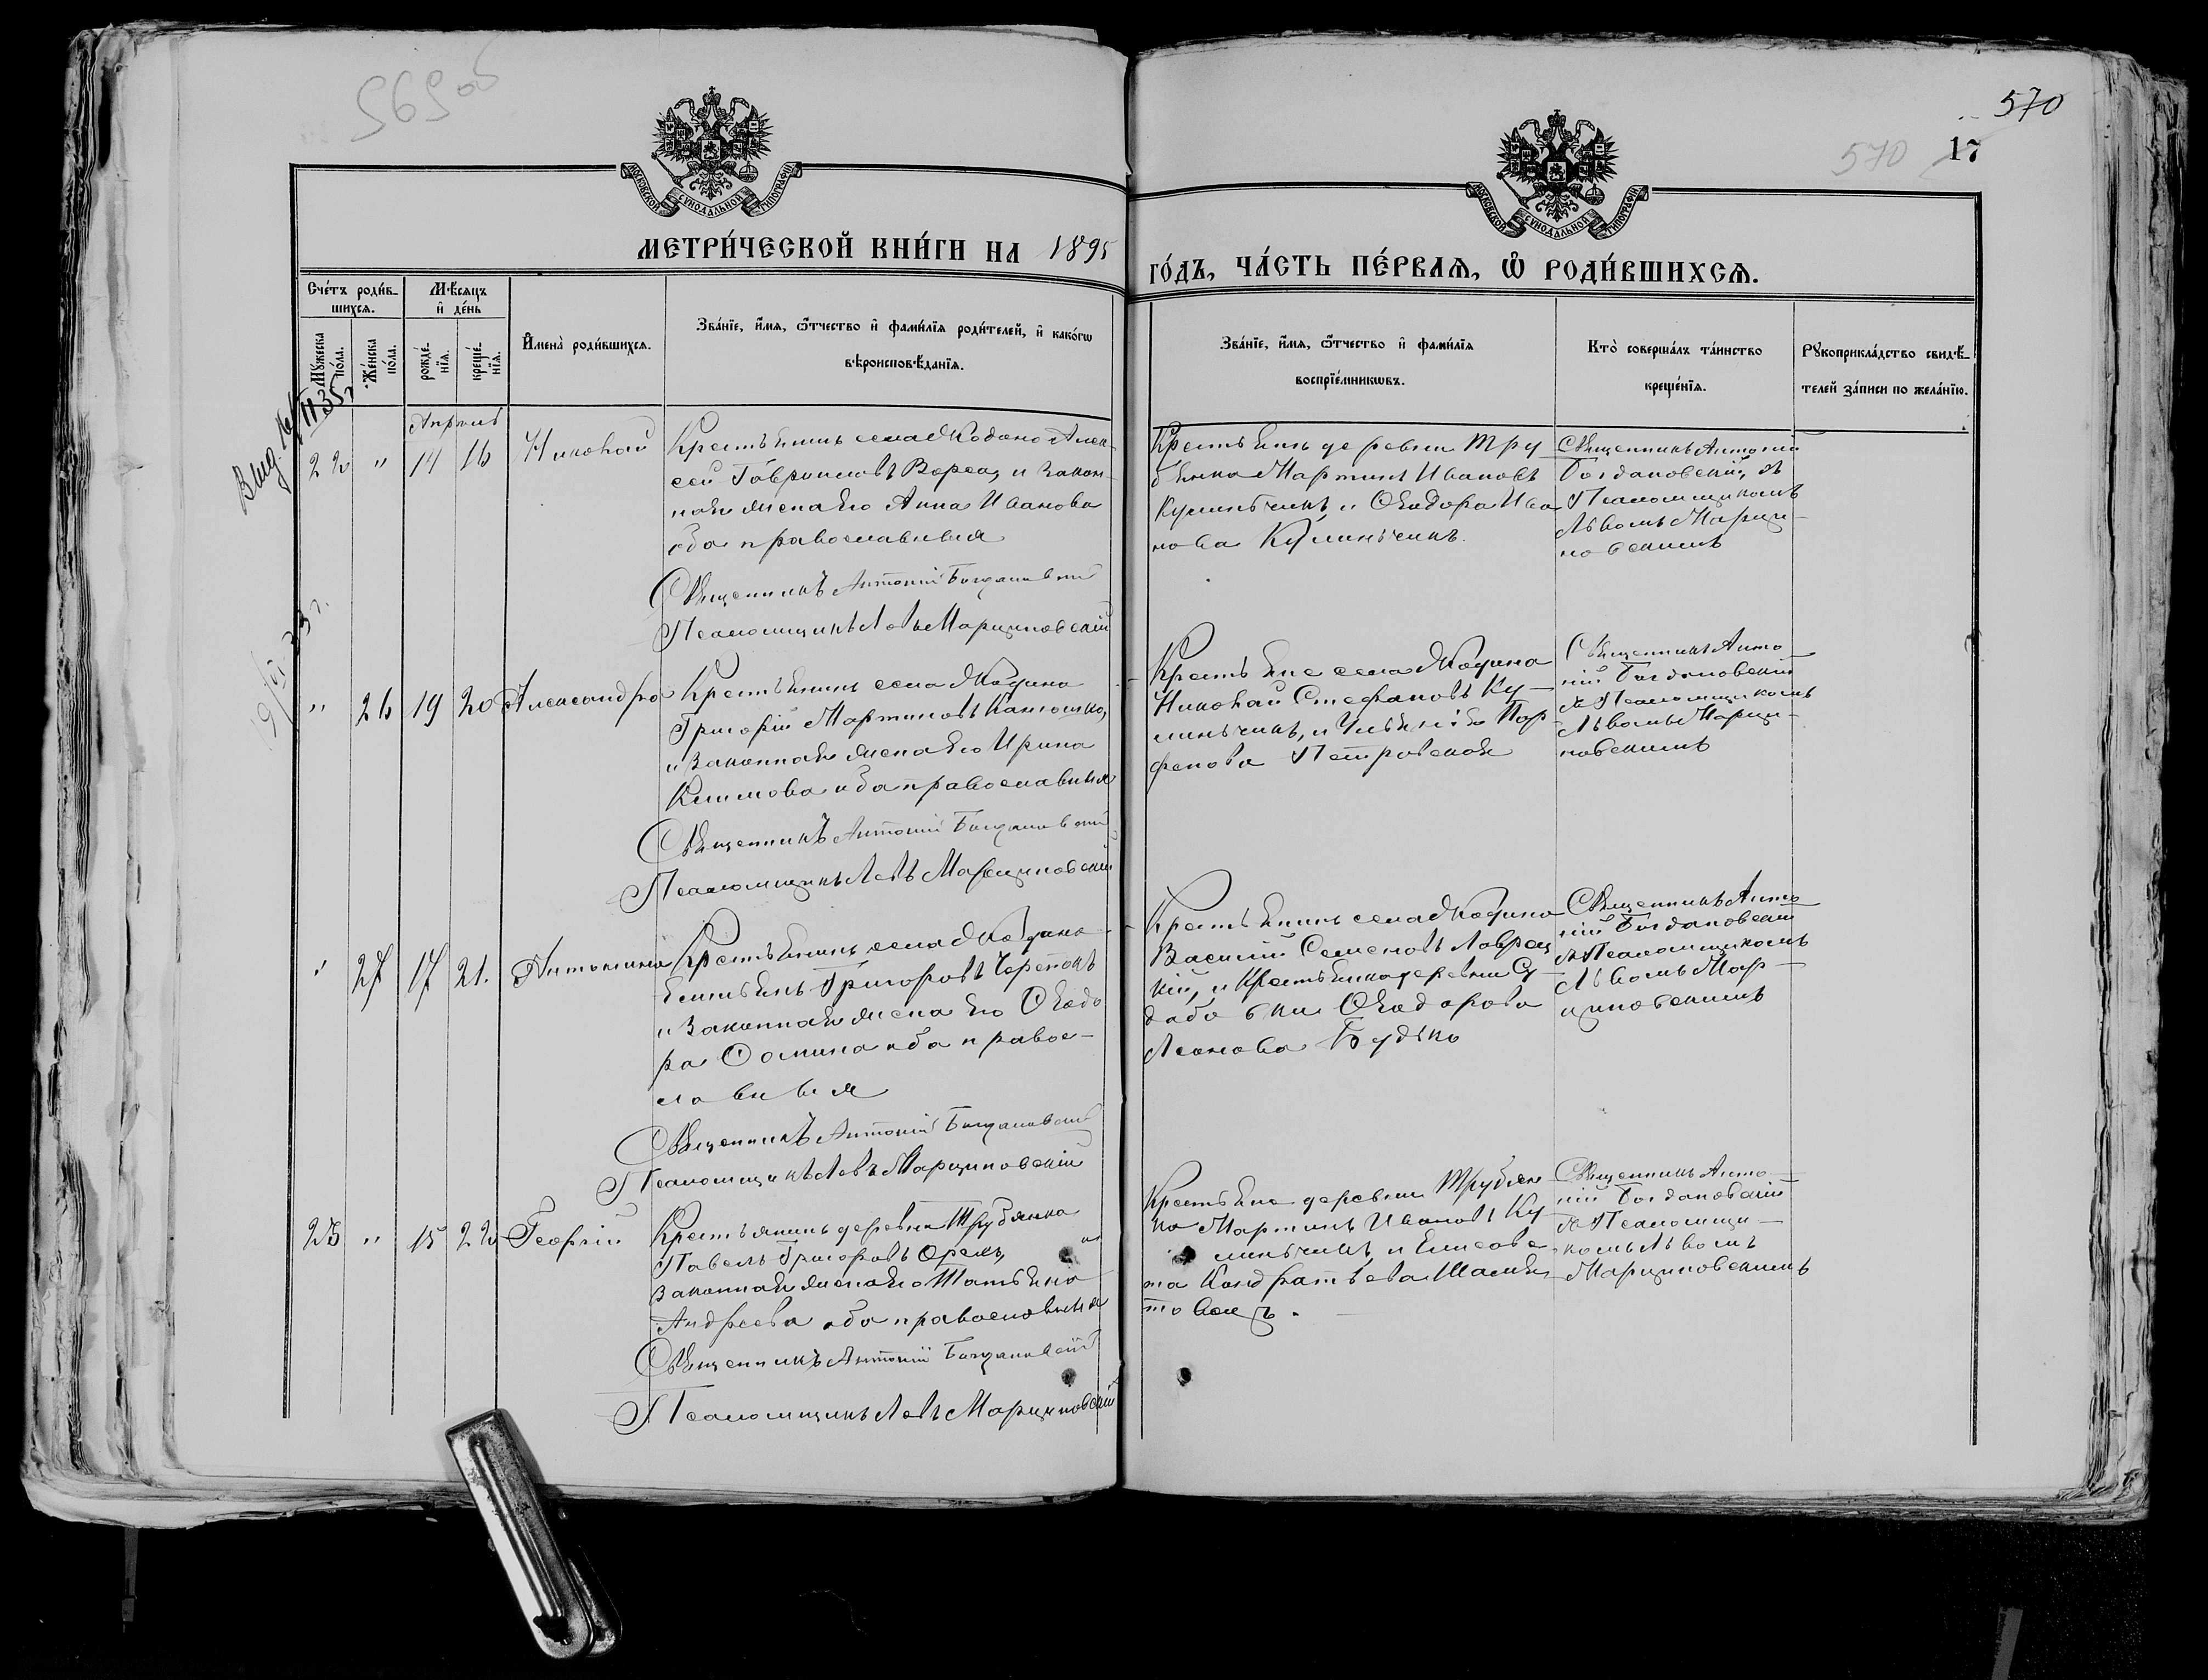 569 об
570
570
17
МОСКОВСКОЙ СѴНОДАЛЬНОЙ ТИПОГРАФІИ
МОСКОВСКОЙ СѴНОДАЛЬНОЙ ТИПОГРАФІИ
МЕТРИ́ЧЕСКОЙ КНИ́ГИ НА 1895
ГО́ДЪ, ЧА́СТЬ ПЕ́РВАѦ, Ѡ҆ РОДИ́ВШИХСѦ.
Сче́тъ роди́в-
шихсѧ.
Мѣ́сѧцъ
и҆ де́нь
Мꙋ́жеска
по́ла.
Же́нска
по́ла.
рожде́-
нїѧ.
креще́-
нїѧ.
И҆мена̀ роди́вшихсѧ.
Зва́нїе, и҆́мѧ, ѻ҆́тчество и҆ фами́лїѧ роди́телей, и҆ како́гѡ
вѣроисповѣ́данїѧ.
Зва́нїе, и҆́мѧ, ѻ҆́тчество и҆ фами́лїѧ
воспрїе́мникѡвъ.
Кто̀ соверша́лъ та́инство
креще́нїѧ.
Рꙋкоприкла́дство свидѣ́-
телей за́писи по жела́нїю.
Апрѣль
22 " 14 16 Николай
Крестьянинъ села Жодино Алек-
сей Гавриловъ Верса, и закон-
ная жена его Анна Иванова
оба православныя
Священникъ Антоній Богдановскій
Псаломщикъ Левъ Марциновскій
Крестьянъ деревни Тру
бянка Мартинъ Ивановъ
Кулинъчикъ, и Ѳеодора Ива
нова Кулинъчикъ.
Священникъ Антоній
Богдановскій, съ
Псаломщикомъ
Львомъ Марци-
новскимъ
" 26 19 20 Александра
Крестьянинъ села Жодина
Григорій Мартиновъ Канюшко,
и законная жена его Ирина
Климова оба православныя
Священникъ Антоній Богдановскій
Псаломщикъ Левъ Марциновскій
Крестьяне села Жодина
Николай Стефановъ Ку-
линьчикъ, и Ульянія Пар-
фенова Петровская
Священникъ Анто-
ній Богдановскій
съ Псаломщикомъ
Львомъ Марци-
новскимъ
" 27 17 21. Антонина
Крестьянинъ села Жодина
Григоровъ
и законная жена его Ѳеодо
ра Ѳомина оба правос-
лавныя
Священникъ Антоній Богдановскій
Псаломщикъ Левъ Марциновскій
Крестьянинъ села Жодина
Василій Семеновъ Лаврец
кій, и Крестьянка деревни Су
добовки Ѳеодорова
Леонова Будько
Священникъ Анто
ній Богдановскій
съ Псаломщикомъ
Львомъ Мар-
циновскимъ
23 " 15 22 Георгій
Крестьянинъ деревни Трубянка
Павелъ Григоровъ Орелъ, и
законная жена его Татьяна
Андреева оба православныя
Священникъ Антоній Богдановскій
Псаломщикъ Левъ Марциновскій
Крестьяне деревни Трубян
ка Мартинъ Ивановъ Ку
линьчикъ, и Елисаве
та Кондратьева
Священникъ Анто-
ній Богдановскій
съ Псаломщи-
комъ Львомъ
Марциновскимъ